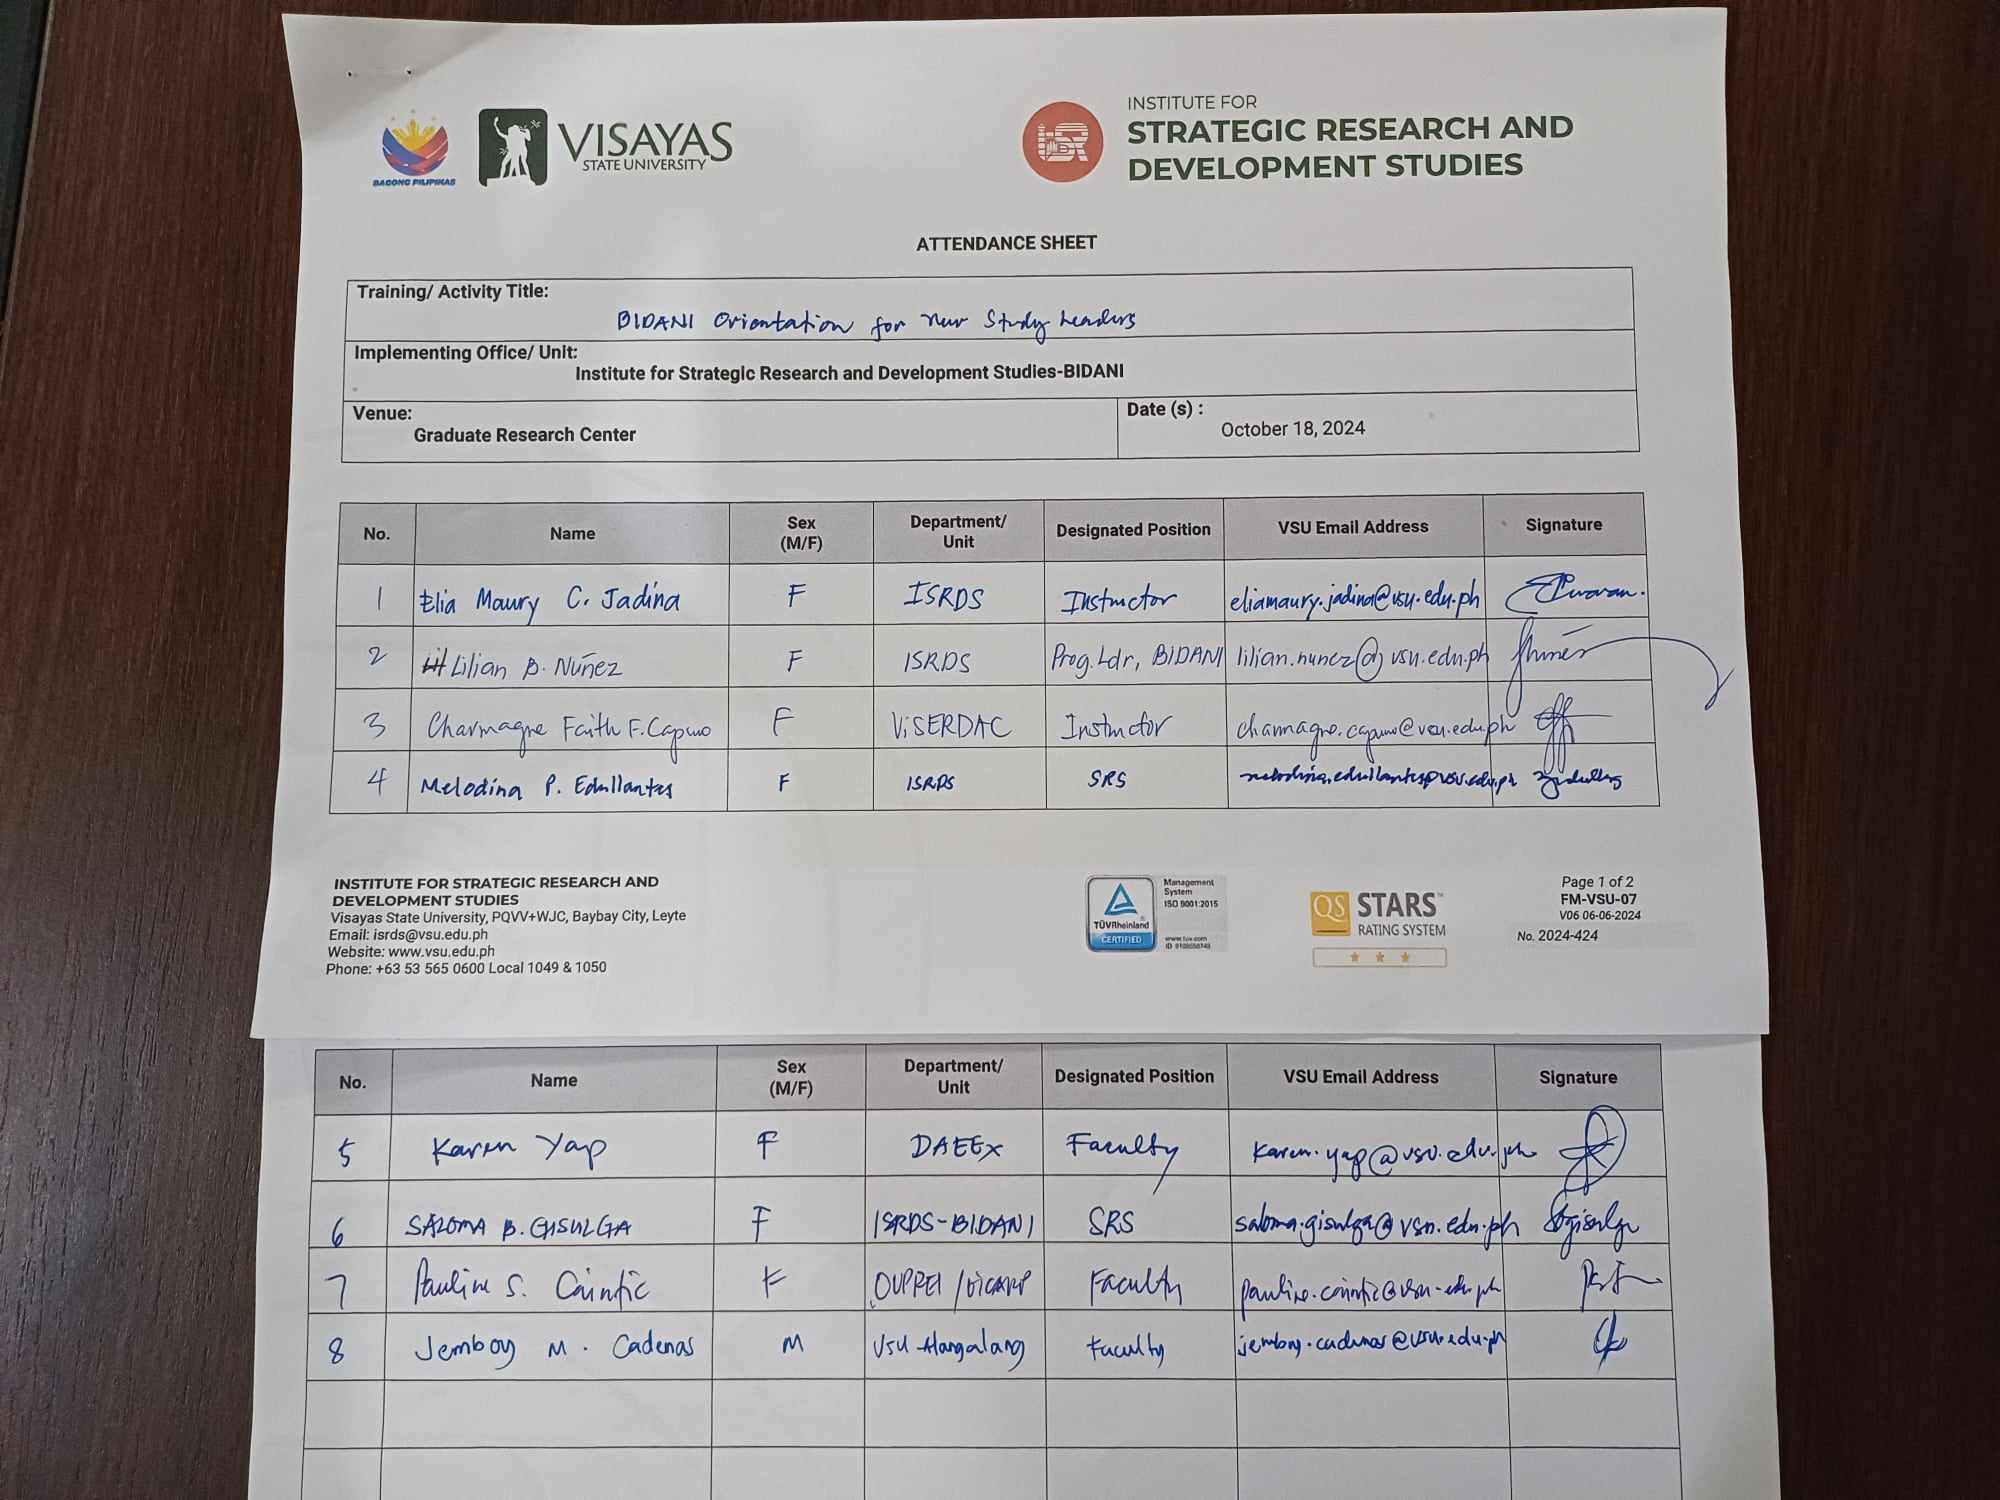 BAGONG PILIPINAS
VISAYAS
STATE UNIVERSITY
INSTITUTE FOR
STRATEGIC RESEARCH AND
DEVELOPMENT STUDIES
ATTENDANCE SHEET
Training/ Activity Title:
BIDANI Orientation for New Study Leaders
Implementing Office/ Unit:
Institute for Strategic Research and Development Studies-BIDANI
Venue:
Graduate Research Center
Date (s) :
October 18, 2024
No. Name Sex (M/F) Department/ Unit Designated Position VSU Email Address Signature
1 Elia Maury C. Jadina F ISRDS Instructor eliamaury.jadina@vsu.edu.ph
2 Lilian B. Nuñez F ISRDS Prog. Ldr, BIDANI lilian.nunez@vsu.edu.ph
3 Charmagne Faith F. Capuno F ViSERDAC Instructor charmagne.capuno@vsu.edu.ph
4 Melodina P. Edullantes F ISRDS SRS melodina.edullantes@vsu.edu.ph
INSTITUTE FOR STRATEGIC RESEARCH AND
DEVELOPMENT STUDIES
Visayas State University, PQVV+WJC, Baybay City, Leyte
Email: isrds@vsu.edu.ph
Website: www.vsu.edu.ph
Phone: +63 53 565 0600 Local 1049 & 1050
TÜVRheinland
CERTIFIED
Management
System
ISO 9001:2015
www.tuv.com
QS STARS™
RATING SYSTEM
Page 1 of 2
FM-VSU-07
V06 06-06-2024
No. 2024-424
No. Name Sex (M/F) Department/ Unit Designated Position VSU Email Address Signature
5 Karen Yap F DAEEx Faculty karen.yap@vsu.edu.ph
6 SALOMA B. GISULGA F ISRDS-BIDANI SRS saloma.gisulga@vsu.edu.ph
7 Pauline S. Caintic F Faculty pauline.caintic@vsu.edu.ph
8 Jemboy M. Cadenas M VSU Alangalang Faculty jemboy.cadenas@vsu.edu.ph